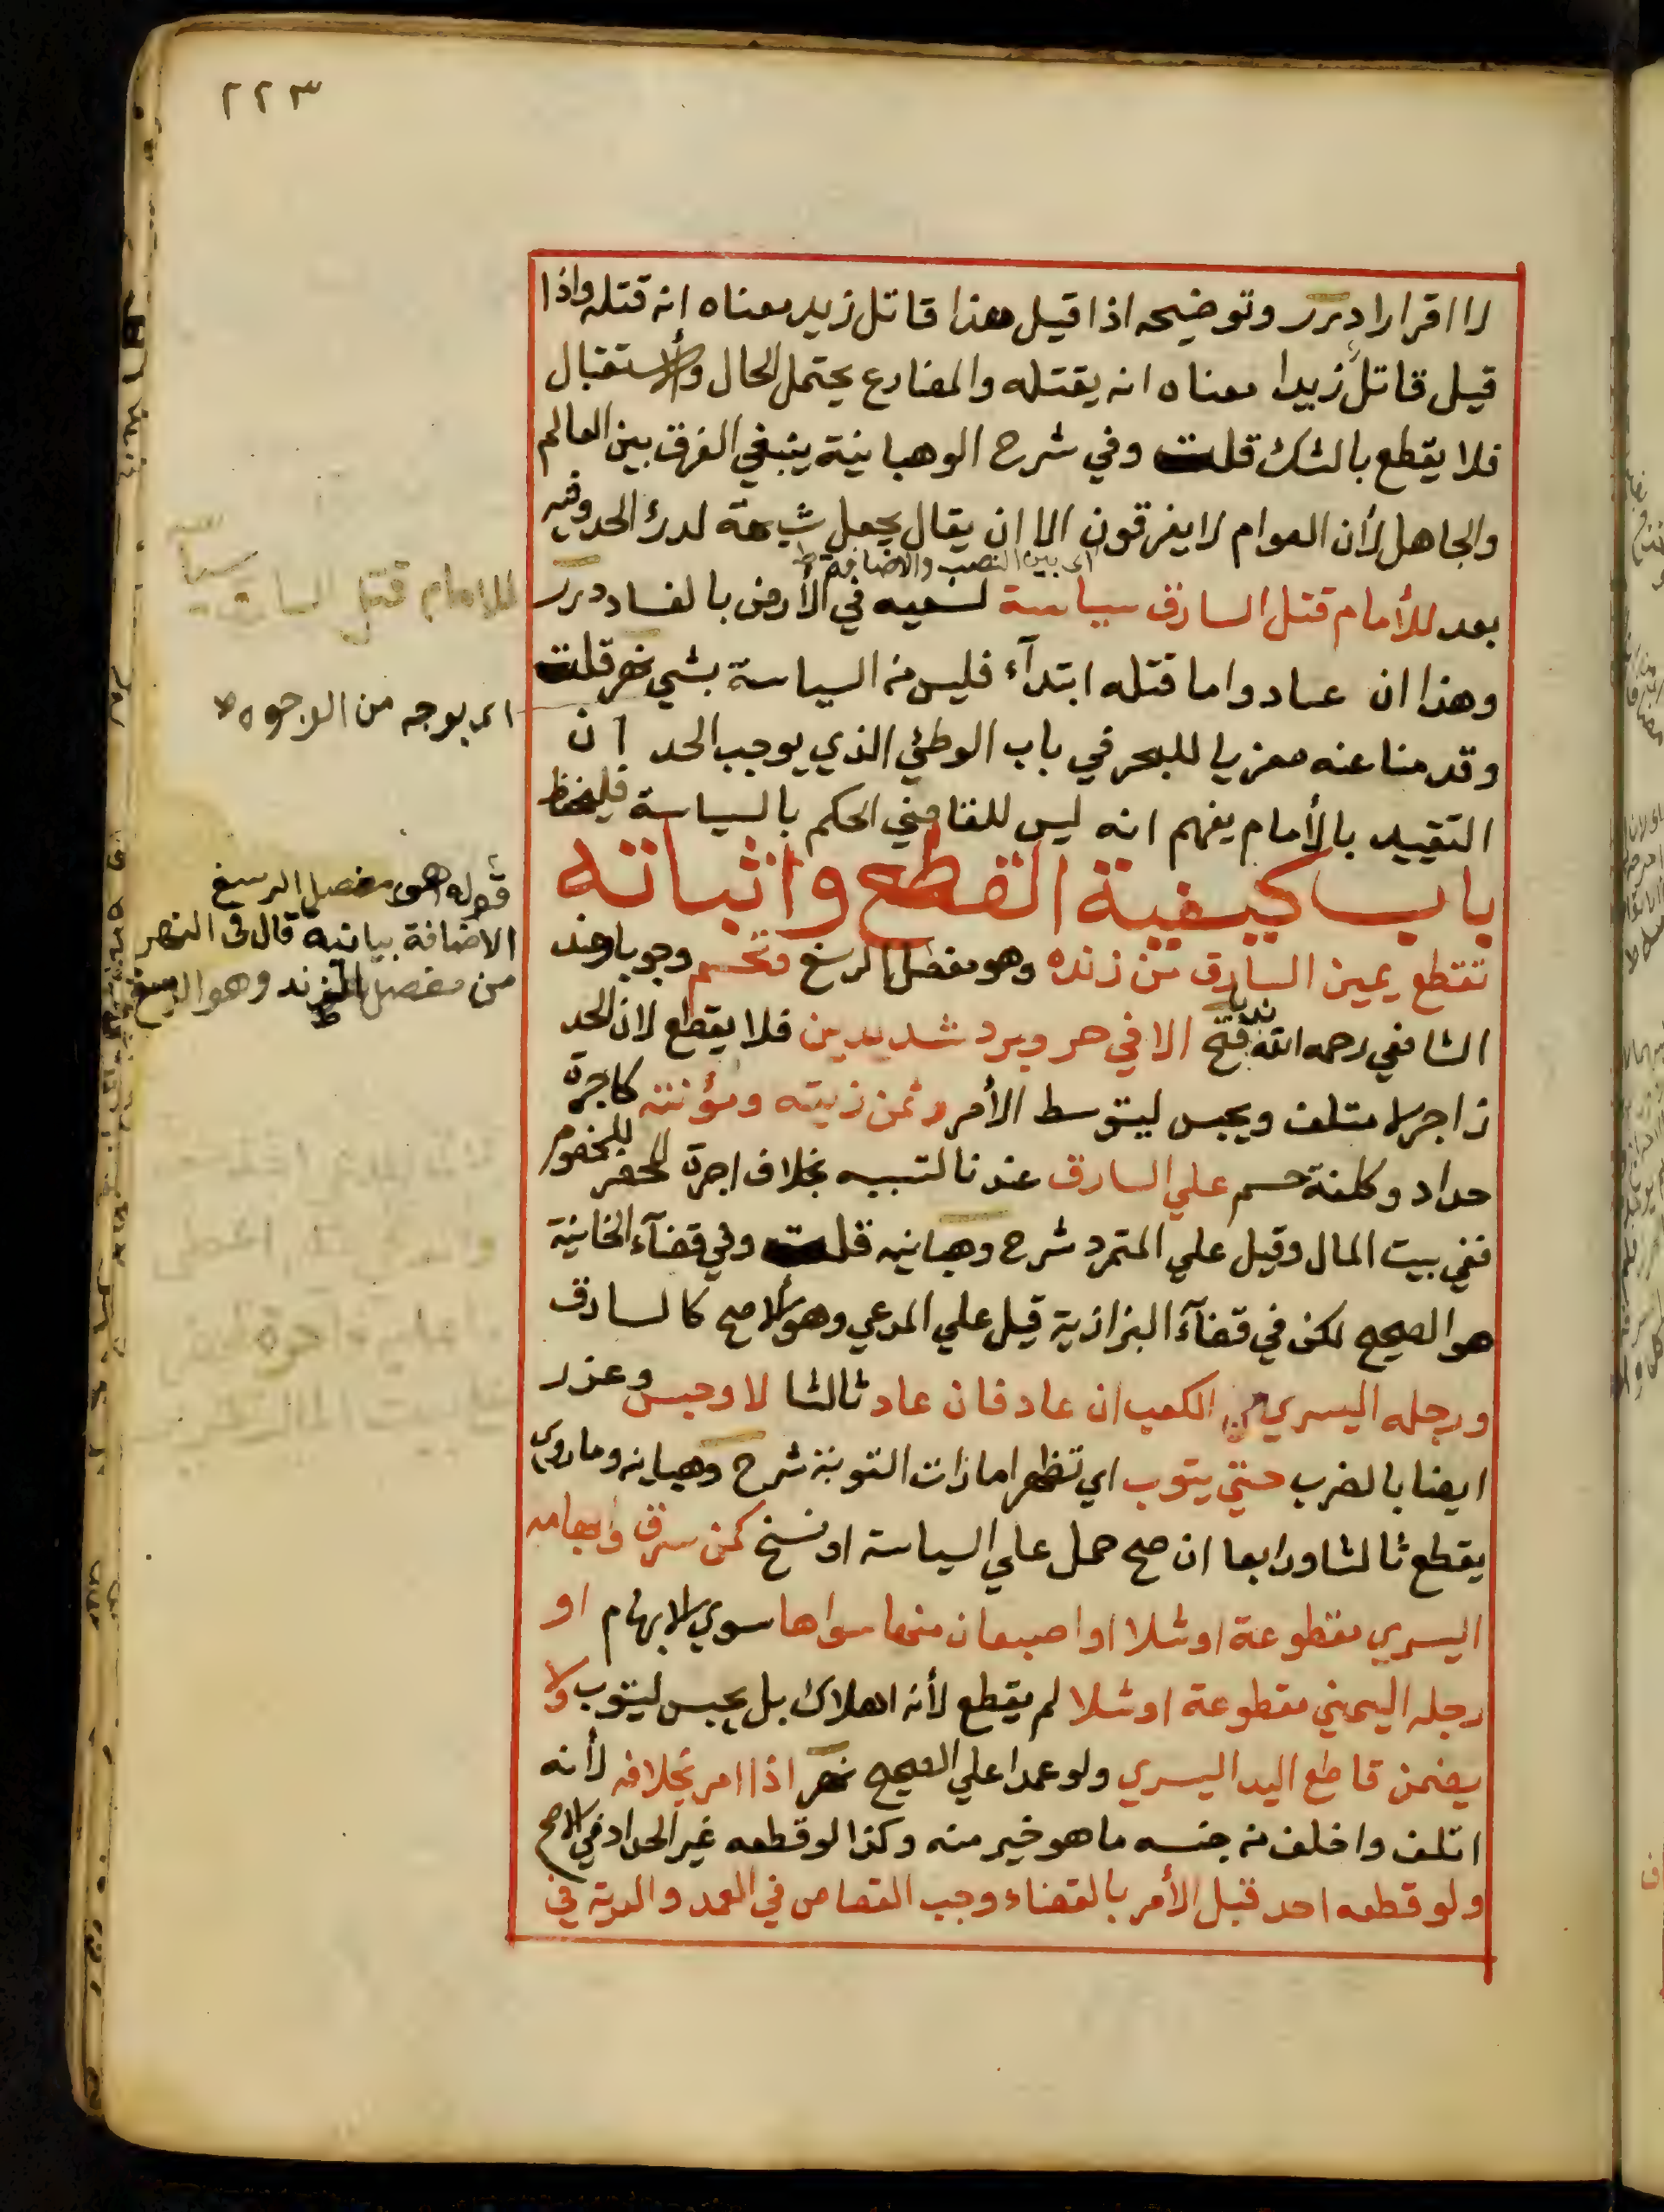 ٢٢٣
لا اقرارا درر وتوضيحه اذا قيل هذا قاتل زيد معناه انه قتله واذا
قيل قاتل زيدا معناه انه يقتله والمضارع يحتمل الحال والاستقبال
فلا يقطع بالشك قلت وفي شرح الوهبانية ينبغي الفرق بين العالم
والجاهل لأن العوام لا يفرقون الا ان يقال يجعل شبهة لدرئ الحد وفيه
اى بين النصب والاضافة ط
بعد للأمام قتل السارق سياسة لسعيه في الأرض بالفساد درر
وهذا ان عاد واما قتله ابتدآء فليس من السياسة بشي نهر قلت
وقدمنا عنه معزيا للبحر في باب الوطئ الذي يوجب الحد ان
التقييد بالأمام يفهم انه ليس للقاضي الحكم بالسياسة فليحفظ
باب كيفية القطع واثباته
تقطع يمين السارق من زنده وهو مفصل الرسغ وتحسم وجوبا وعند
الشافعي رحمه الله ندبا فتح الا في حر وبرد شديدين فلا يقطع لان الحد
زاجر لا متلف ويحبس ليتوسط الأمر وثمن زيته ومؤنته كاجرة
حداد وكلفة حسم علي السارق عندنا لتسببه بخلاف اجرة المحضر للخصوم
ففي بيت المال وقيل علي المتمرد شرح وهبانيه قلت وفي قضآء الخانية
هو الصحيح لكن في قضآء البزازية قيل علي المدعي وهو الاصح كالسارق
ورجله اليسري من الكعب ان عاد فان عاد ثالثا لا وحبس وعزر
ايضا بالضرب حتي يتوب اي تظهر امارات التوبة شرح وهبانه وما روى
يقطع ثالثا ورابعا ان صح حمل علي السياسة او نسخ كمن سرق وابهامه
اليسري مقطوعة او شلا او اصبعان منها سواها سوي الابهام او
رجله اليمني مقطوعة او شلا لم يقطع لأنه اهلاك بل يحبس ليتوب ولا
يضمن قاطع اليد اليسري ولو عمدا علي الصحيح نهر اذا امر بخلافه لأنه
اتلف واخلف من جنسه ما هو خير منه وكذا لو قطعه غير الحداد في الاصح
ولو قطعه احد قبل الأمر بالقضاء وجب القصاص في العمد والدية في
للامام قتل السارق
اى بوجه من الوجوه ط
قوله وهو مفصل الرسغ
الاضافة بيانية قال فى النهر
من مفصل الزند وهو الرسغ
ط